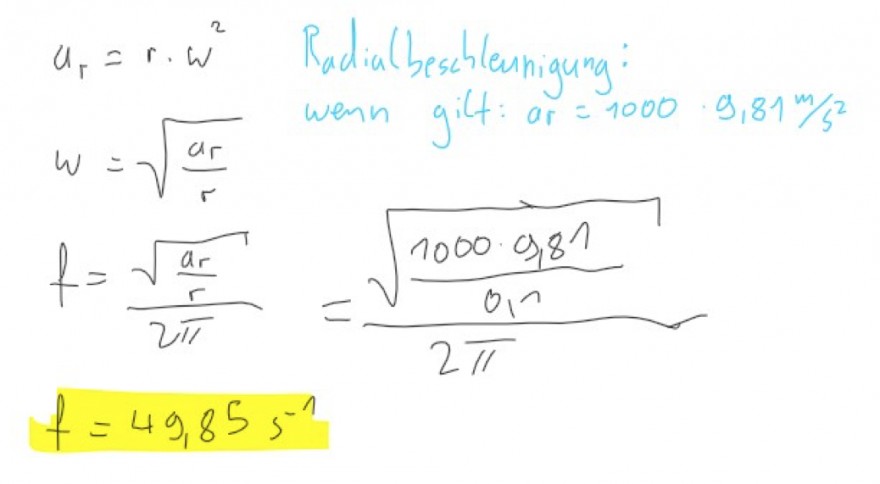 a_r = r · w²
Radialbeschleunigung:
wenn gilt: ar = 1000 · 9,81 m/s²
w = √(ar/r)
f = √(ar/r) / 2π = √(1000 · 9,81 / 0,1) / 2π
f = 49,85 s⁻¹